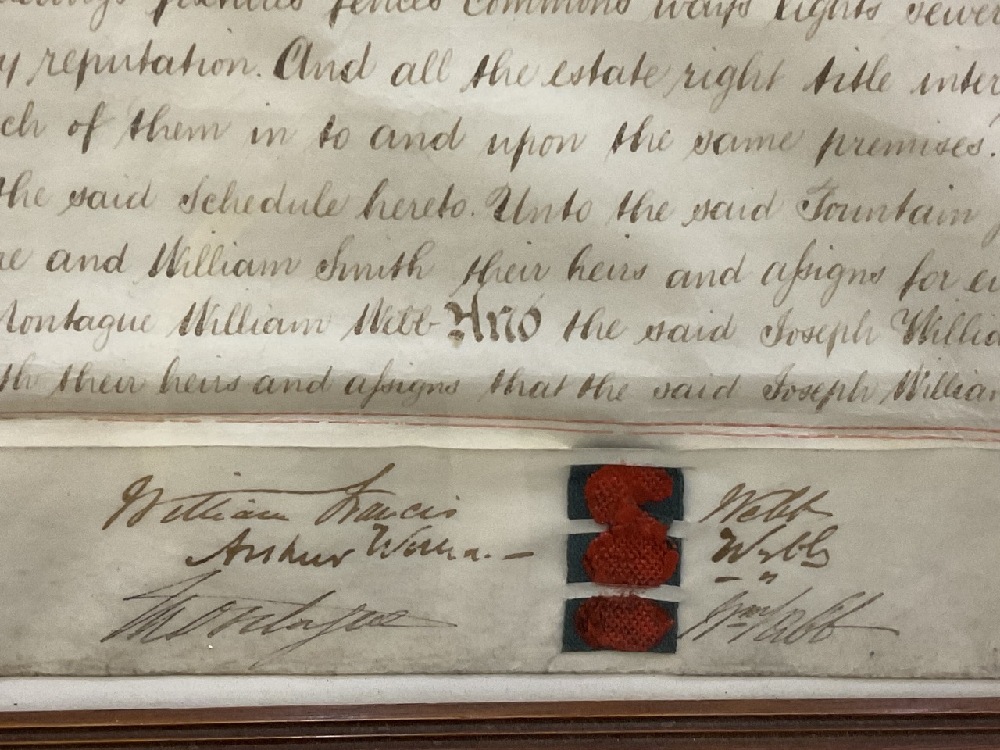 fixtures fences commons ways rights sewer
y reputation. And all the estate right title inter
ch of them in to and upon the same premises.
the said Schedule hereto. Unto the said Fountain
e and William Smith their heirs and assigns for e
ontague William Webb And the said Joseph Willia
th their heirs and assigns that the said Joseph William
William Francis Webb
Arthur Webb
Montague Wm Webb